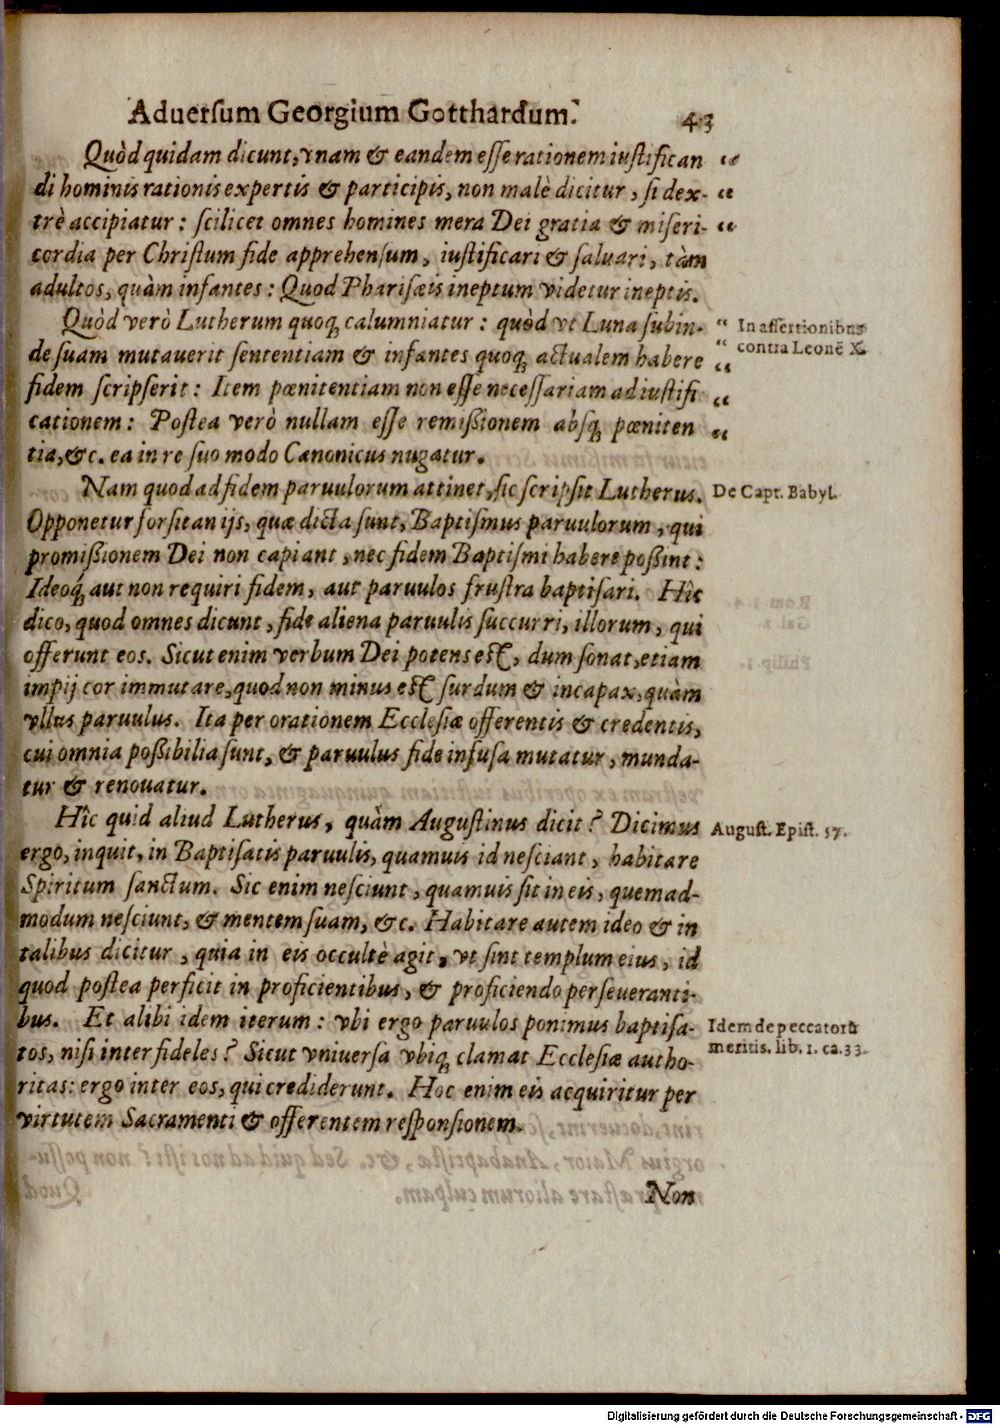 Aduerſum Georgium Gotthardum. 43
Quòd quidam dicunt, vnam & eandem eſſe rationem iuſtifican „
di hominis rationis expertis & participis, non malè dicitur, ſi dex- „
trè accipiatur: ſcilicet omnes homines mera Dei gratia & miſeri- „
cordia per Chriſtum fide apprehenſum, iuſtificari & ſaluari, tàm
adultos, quàm infantes: Quod Phariſæis ineptum videtur ineptis.
Quòd verò Lutherum quoq́; calumniatur: quòd vt Luna ſubin- „ In aſſertionibus
de ſuam mutauerit ſententiam & infantes quoq́; actualem habere „ contra Leonē X.
fidem ſcripſerit: Item pœnitentiam non eſſe neceſſariam ad iuſtifi „
cationem: Poſtea verò nullam eſſe remißionem abſq́; pœniten „
tia, &c. ea in re ſuo modo Canonicus nugatur.
Nam quod ad fidem paruulorum attinet, ſic ſcripſit Lutherus. De Capt. Babyl.
Opponetur forſitan ijs, quæ dicta ſunt, Baptiſmus paruulorum, qui
promißionem Dei non capiant, nec fidem Baptiſmi habere poßint:
Ideoq́; aut non requiri fidem, aut paruulos fruſtra baptiſari. Hîc
dico, quod omnes dicunt, fide aliena paruulis ſuccurri, illorum, qui
offerunt eos. Sicut enim verbum Dei potens eſt, dum ſonat, etiam
impij cor immutare, quod non minus eſt ſurdum & incapax, quàm
vllus paruulus. Ita per orationem Eccleſiæ offerentis & credentis,
cui omnia poßibilia ſunt, & paruulus fide infuſa mutatur, munda-
tur & renouatur.
Hîc quid aliud Lutherus, quàm Auguſtinus dicit? Dicimus Auguſt. Epiſt. 57.
ergo, inquit, in Baptiſatis paruulis, quamuis id neſciant, habitare
Spiritum ſanctum. Sic enim neſciunt, quamuis ſit in eis, quemad-
modum neſciunt, & mentem ſuam, &c. Habitare autem ideo & in
talibus dicitur, quia in eis occultè agit, vt ſint templum eius, id
quod poſtea perficit in proficientibus, & proficiendo perſeueranti-
bus. Et alibi idem iterum: vbi ergo paruulos ponimus baptiſa- Idem de peccatorū
tos, niſi inter fideles? Sicut vniuerſa vbiq́; clamat Eccleſiæ autho- meritis. lib. 1. ca. 33.
ritas: ergo inter eos, qui crediderunt. Hoc enim eis acquiritur per
virtutem Sacramenti & offerentem reſponſionem.
Non
Digitalisierung gefördert durch die Deutsche Forschungsgemeinschaft - DFG